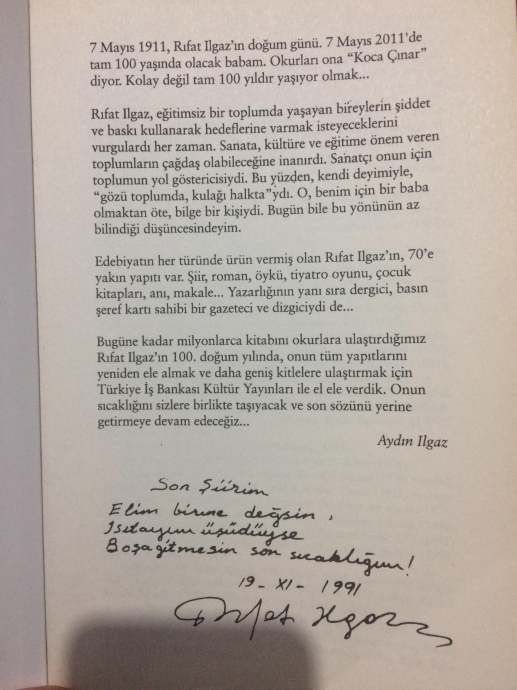 7 Mayıs 1911, Rıfat Ilgaz'ın doğum günü. 7 Mayıs 2011'de
tam 100 yaşında olacak babam. Okurları ona “Koca Çınar”
diyor. Kolay değil tam 100 yıldır yaşıyor olmak...
Rıfat Ilgaz, eğitimsiz bir toplumda yaşayan bireylerin şiddet
ve baskı kullanarak hedeflerine varmak isteyeceklerini
vurgulardı her zaman. Sanata, kültüre ve eğitime önem veren
toplumların çağdaş olabileceğine inanırdı. Sanatçı onun için
toplumun yol göstericisiydi. Bu yüzden, kendi deyimiyle,
“gözü toplumda, kulağı halkta”ydı. O, benim için bir baba
olmaktan öte, bilge bir kişiydi. Bugün bile bu yönünün az
bilindiği düşüncesindeyim.
Edebiyatın her türünde ürün vermiş olan Rıfat Ilgaz'ın, 70'e
yakın yapıtı var. Şiir, roman, öykü, tiyatro oyunu, çocuk
kitapları, anı, makale... Yazarlığının yanı sıra dergici, basın
şeref kartı sahibi bir gazeteci ve dizgiciydi de...
Bugüne kadar milyonlarca kitabını okurlara ulaştırdığımız
Rıfat Ilgaz'ın 100. doğum yılında, onun tüm yapıtlarını
yeniden ele almak ve daha geniş kitlelere ulaştırmak için
Türkiye İş Bankası Kültür Yayınları ile el ele verdik. Onun
sıcaklığını sizlere birlikte taşıyacak ve son sözünü yerine
getirmeye devam edeceğiz...
Aydın Ilgaz
Son Şiirim
Elim birine değsin,
Isıtayım üşüdüyse
Boşa gitmesin son sıcaklığım!
19 - XI - 1991
Rıfat Ilgaz